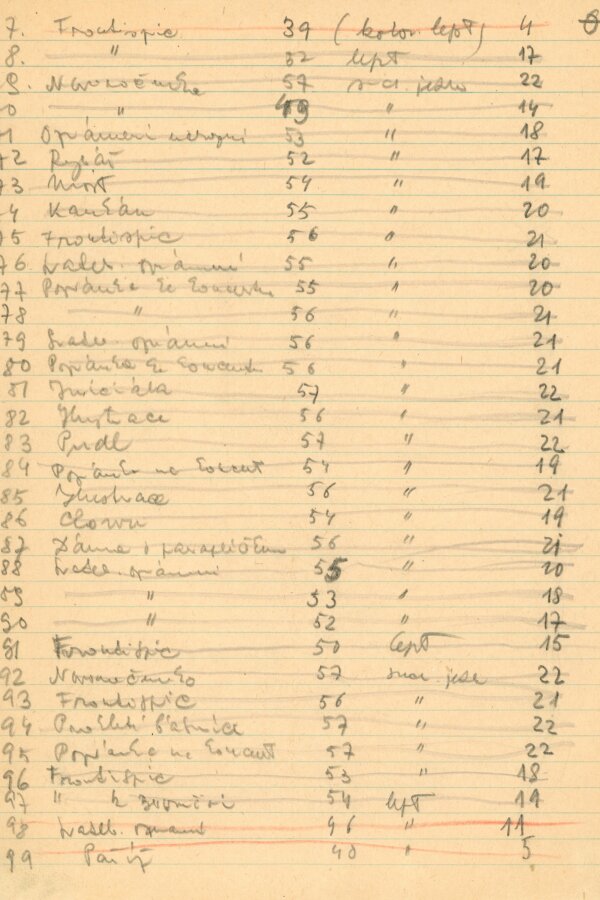 7. Frontispic 39 (kolor. lept) 4
8. " 52 lept 17
9. Novoročenka 57 such. jehla 22
0 " 49 " 14
1 Oznámení 53 " 18
72 Rybář 52 " 17
73 Most 54 " 19
4 55 " 20
75 Frontispic 56 " 21
76 oznámení 55 " 20
77 Pozvánka ke koncertu 55 " 20
78 " 56 " 21
79 oznámení 56 " 21
80 Pozvánka ke koncertu 56 " 21
81 Iniciála 57 " 22
82 Ilustrace 56 " 21
83 Pudl 57 " 22
84 Pozvánka na koncert 54 " 19
85 Ilustrace 56 " 21
86 Clown 54 " 19
87 Dáma s 56 " 21
88 oznámení 55 " 20
89 " 53 " 18
90 " 52 " 17
91 Frontispic 50 lept 15
92 Novoročenka 57 such. jehla 22
93 Frontispic 56 " 21
94 57 " 22
95 Pozvánka na koncert 57 " 22
96 Frontispic 53 " 18
97 " k 54 lept 19
98 46 " 11
99 Paříž 40 " 5